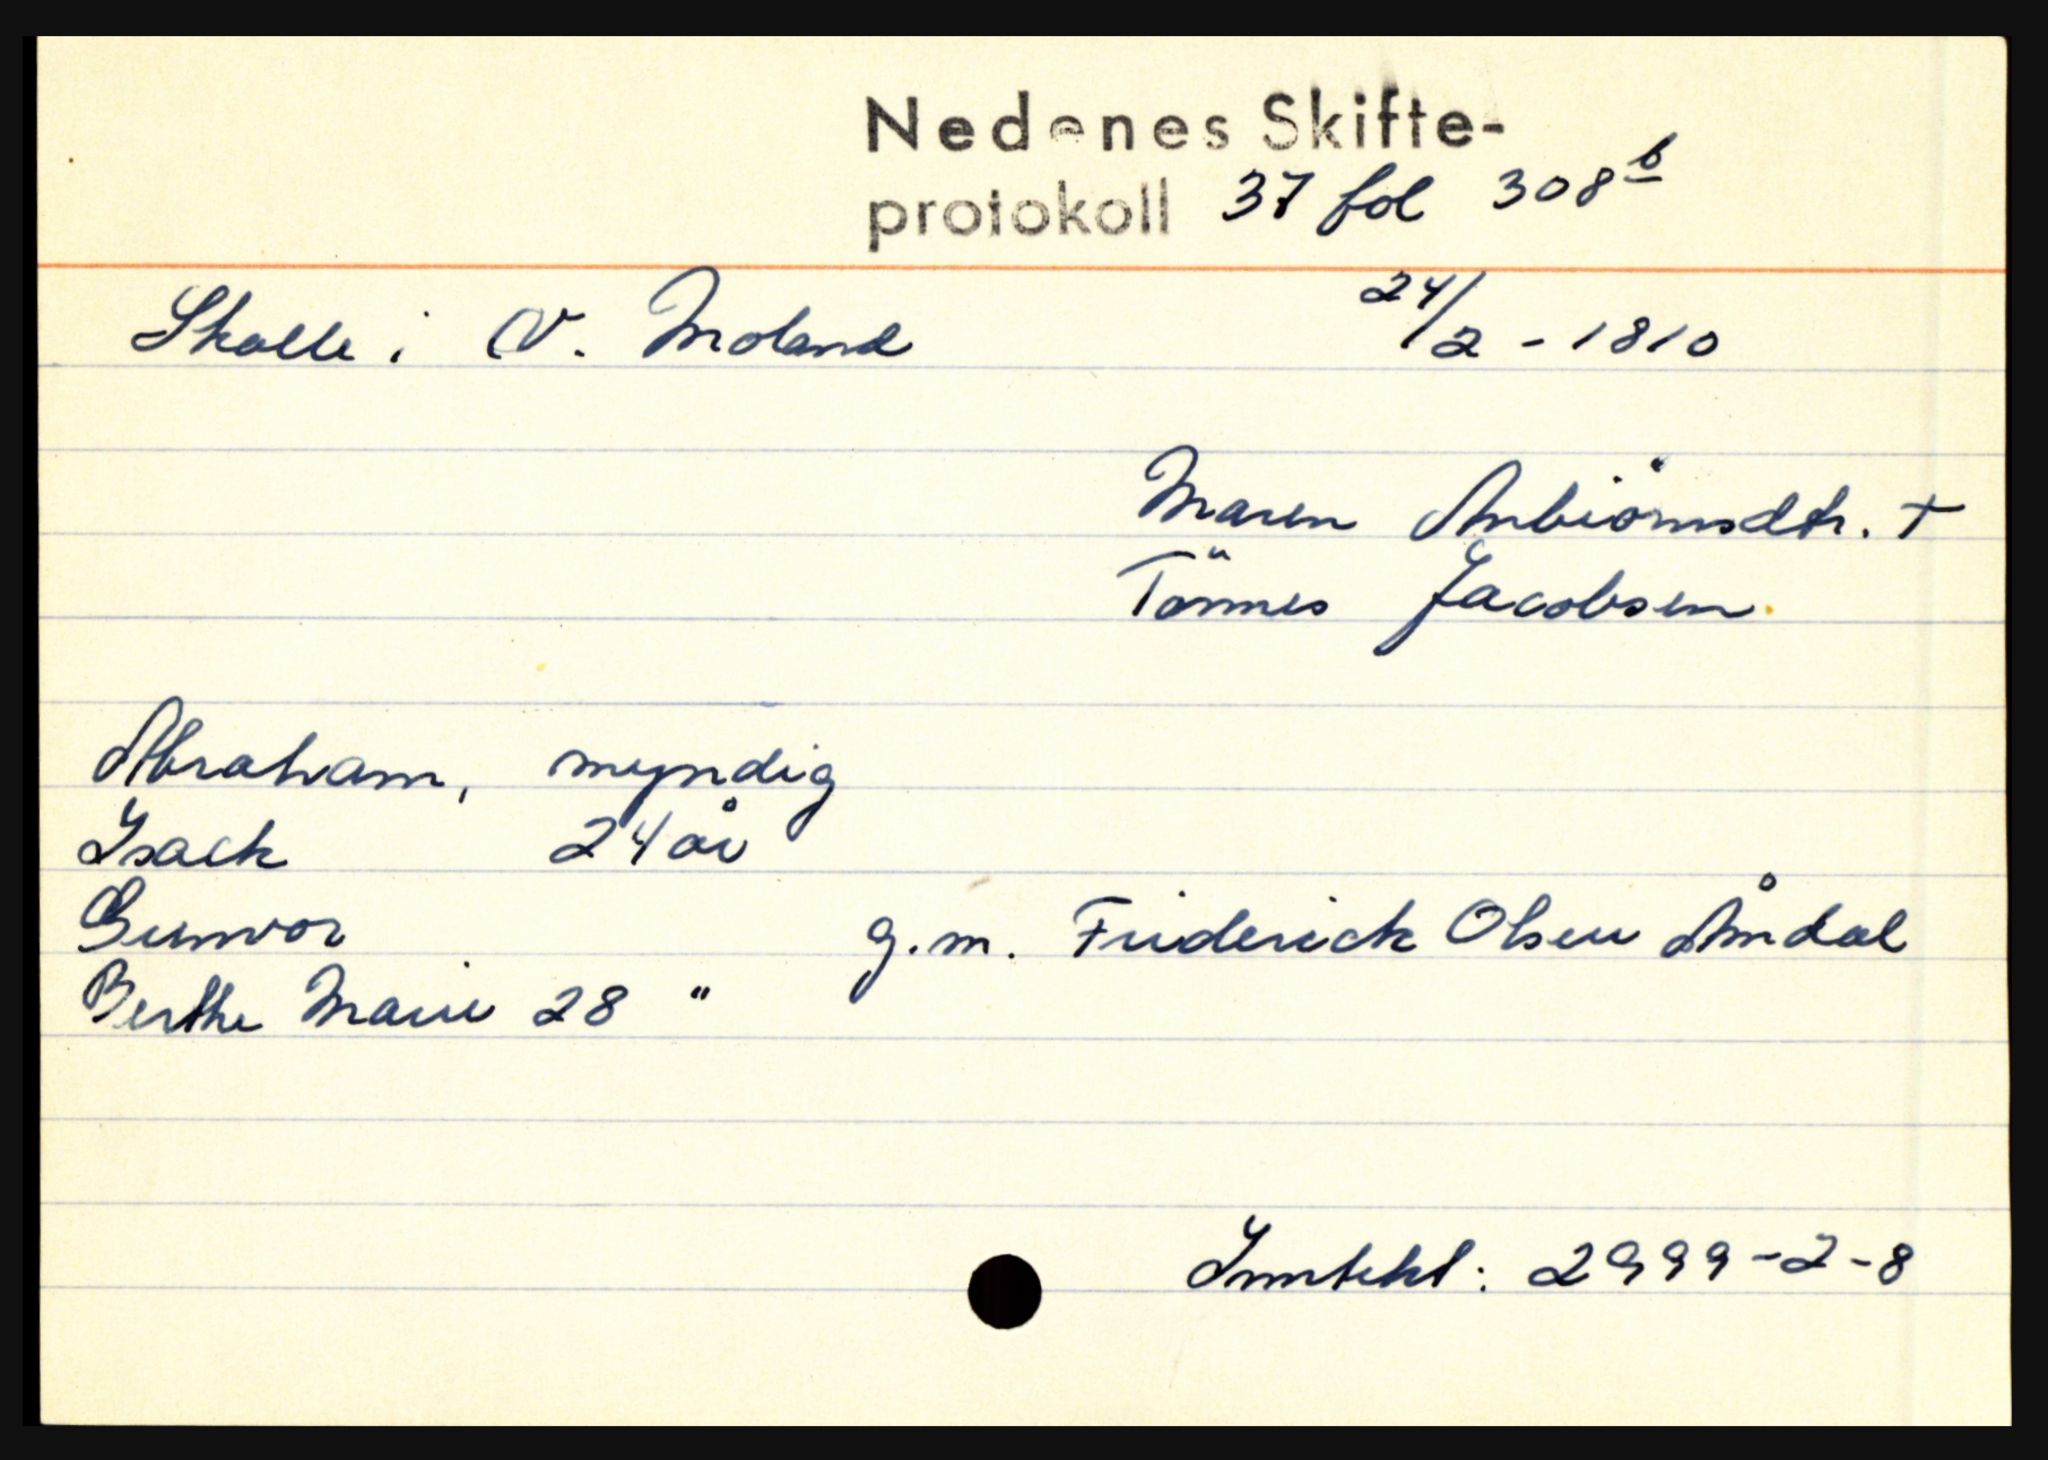 Nedenes Skifte-
protokoll 37 fol 308b
Skalle i V. Moland 24/2 - 1810
Maren Anbiörnsdtr. +
Tönnes Jacobsen
Abraham, myndig
Isack 24 år
Gunvor g.m. Friderick Olsen Åmdal
Berthe Marie 28 "
Inntekt: 2999-2-8